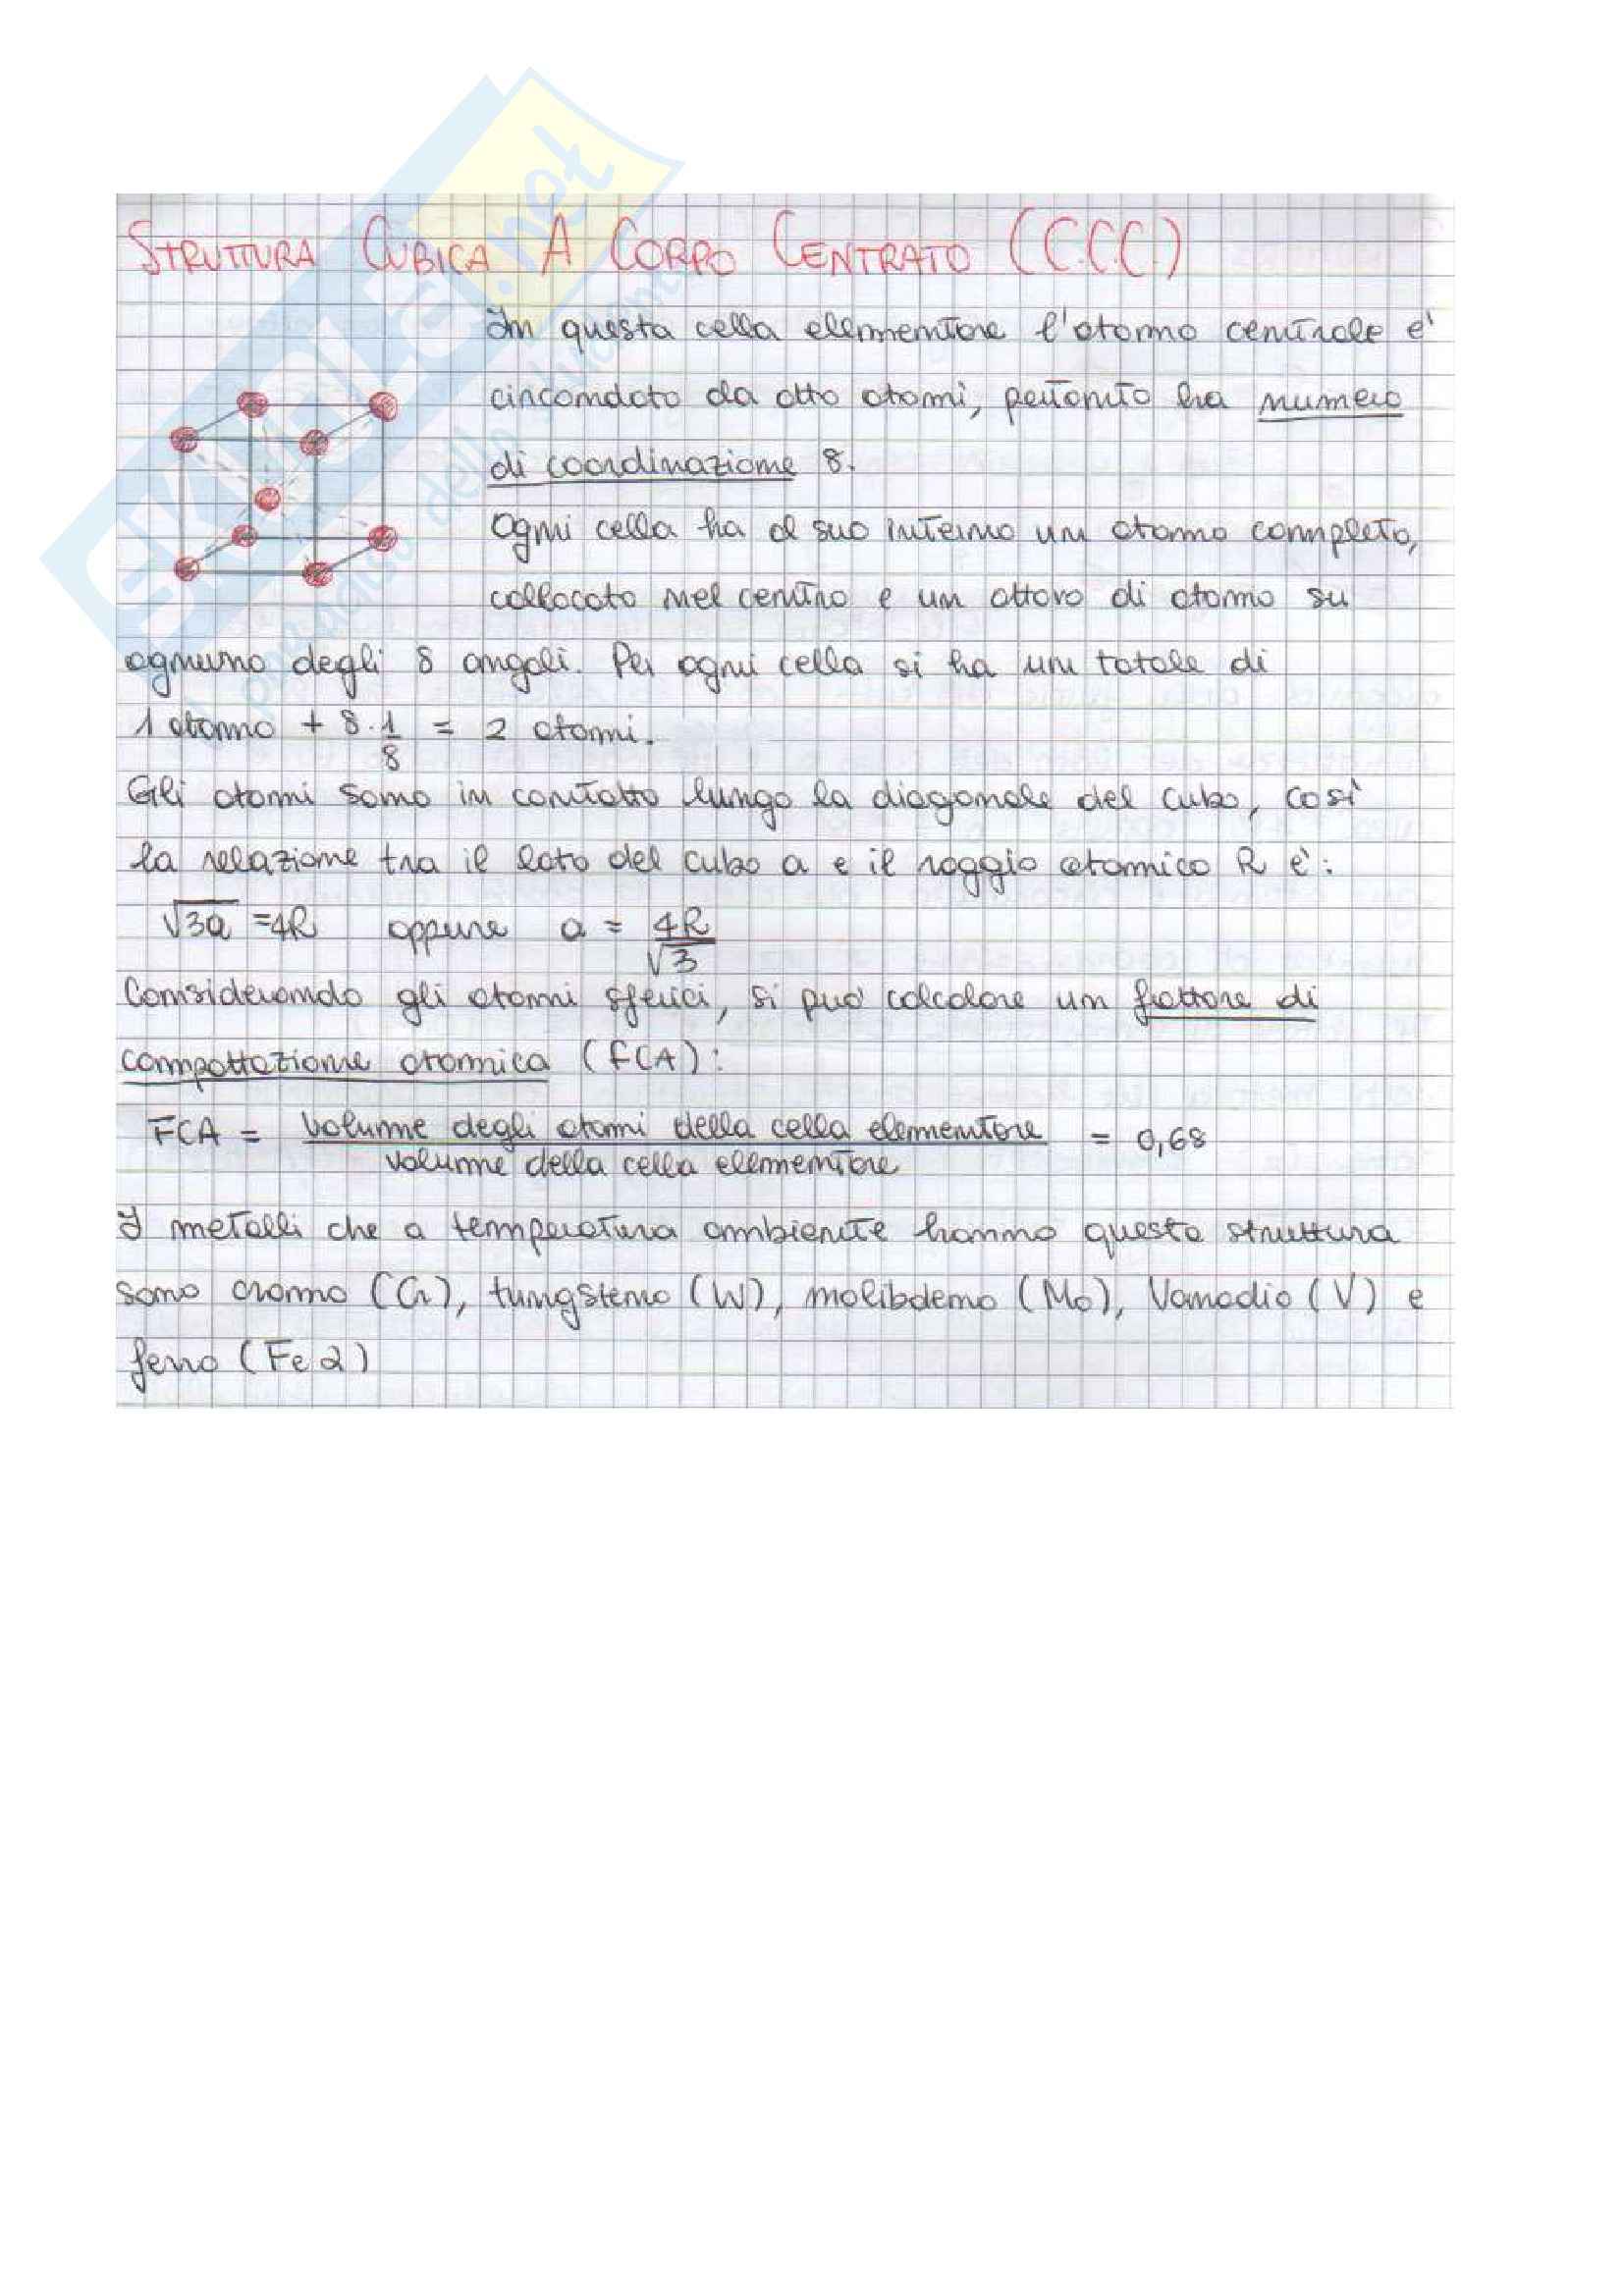 SKUOLA.net
STRUTTURA CUBICA A CORPO CENTRATO (C.C.C.)
In questa cella elementare l'atomo centrale e'
circondato da otto atomi, pertanto ha numero
di coordinazione 8.
Ogni cella ha al suo interno un atomo completo,
collocato nel centro e un ottavo di atomo su
ognuno degli 8 angoli. Per ogni cella si ha un totale di
1 atomo + 8·1/8 = 2 atomi.
Gli atomi sono in contatto lungo la diagonale del cubo, così
la relazione tra il lato del cubo a e il raggio atomico R è:
√3a = 4R oppure a = 4R/√3
Considerando gli atomi sferici, si può calcolare un fattore di
compattazione atomica (FCA):
FCA = volume degli atomi della cella elementare / volume della cella elementare = 0,68
I metalli che a temperatura ambiente hanno questa struttura
sono cromo (Cr), tungsteno (W), molibdeno (Mo), Vanadio (V) e
ferro (Fe α)